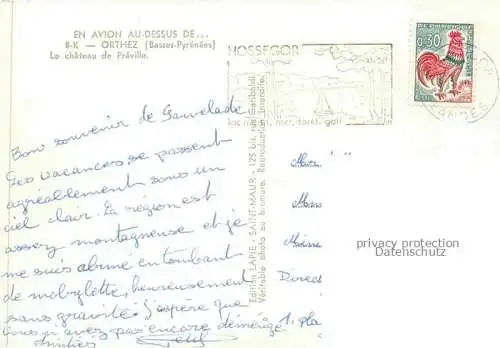 EN AVION AU-DESSUS DE...
8-K — ORTHEZ (Basses-Pyrénées)
Le château de Préville.
HOSSEGOR
lac marin, mer, forêt, golf
REPUBLIQUE FRANCAISE
0,30
LANDES
Bon souvenir de Sauvelade
Les vacances se passent
agréablement sous un
ciel clair. La région est
assez montagneuse et je
me suis abîmé en tombant
de mobylette, heureusement
sans gravité. J'espère que
vous n'avez pas encore déménagé
Amitiés
Editions LAPIE - SAINT-MAUR - 125 bis, rue Garibaldi
Véritable photo au bromure. Reproduction interdite.
Direct
1, pla
privacy protection
Datenschutz